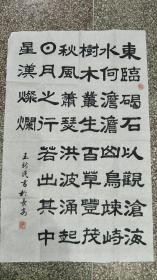 東臨碣石以觀滄海
水何澹澹山島竦峙
樹木叢生百草豐茂
秋風蕭瑟洪波涌起
日月之行若出其中
星漢燦爛
書於長安